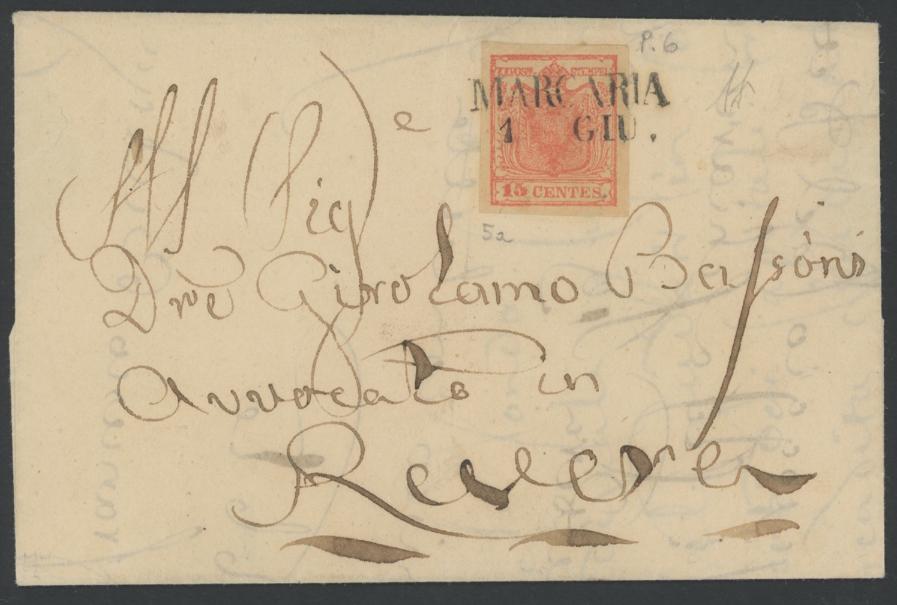 P. 6
K.K.POST-STEMPEL
MARCARIA
1 GIU.
15 CENTES.
5a
All Sig e
Dre Girolamo Bassòni
Avvocato in
Revere